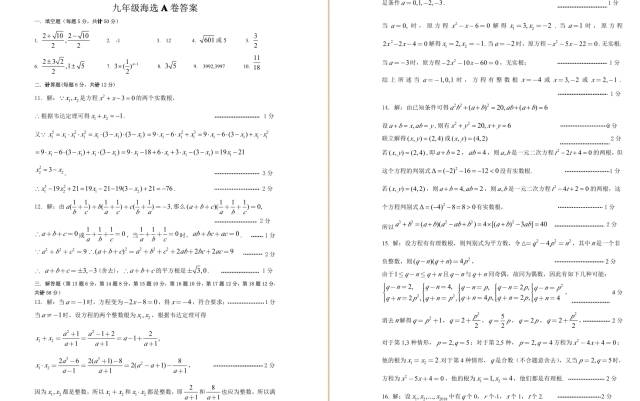 九年级海选A卷答案
一、填空题（每题5分，共计50分）
1. (2+√10)/2, (2-√10)/2 2. -1 3. 12 4. √601 或5 5. 3/2
6. (2±3√2)/2, 1±√5 7. 3×(1/2)^(n-1) 8. 3√5 9. 3992,3997 10. 11/18
二、计算题(每题6分，共计12分)
11. 解：∵x₁,x₂是方程x²+x-3=0的两个实数根，
∴根据韦达定理可得x₁+x₂=-1. 1分
又∵x₁³=x₁·x₁²=x₁·(3-x₁)
x₂²=3-x₂. 3分
∴x₁³-19x₂²+21=19x₁-21-19(3-x₂)+21=-76. 2分
12. 解：由a(1/b+1/c)+b(1/c+1/a)+c(1/a+1/b)=-3. 那么(a+b+c)(1/a+1/b+1/c)=0,
2分
∴a+b+c=0或1/a+1/b+1/c=0，当1/a+1/b+1/c=0时，ab+bc+ac=0 1分
∵a²+b²+c²=9∴(a+b+c)²=a²+b²+c²+2ab+2bc+2ac=9 2分
∴a+b+c=±3,-3(舍去)；∴a+b+c的平方根是±√3,0. 1分
三、解答题（第13题6分，第14题8分，第15题10分，第16题10分，第17题12分，第18题12分，
共计58分）
13. 解：当a=-1时，方程变为-2x-8=0，得x=-4，符合要求； 1分
当a≠-1时，设方程的两个整数根为x₁,x₂，根据韦达定理可得
x₁+x₂=(a²+1)/(a+1)=(a²-1+2)/(a+1)=a-1+2/(a+1),
x₁·x₂=(2a³-6)/(a+1)=(2(a³+1)-8)/(a+1)=2(a²-a+1)-8/(a+1), 2分
因为x₁,x₂都是整数，所以x₁+x₂和x₁·x₂都是整数，即2/(a+1)和8/(a+1)也应为整数，所以满
是条件a=0,1,-2,-3. 1分
当a=0,时，原方程x²-x-6=0解得x₁=3,x₂=-2．当a=1时，原方程
2x²-2x-4=0解得x₁=2,x₂=-1．当a=-2时，原方程-x²-5x-22=0. 无实根;
当a=-3时；原方程-2x²-10x-60=0，无实根; 1分
综上所述当a=-1,0,1时，方程有整数根x=-4或x=3,-2或x=2,-1．
1分
14. 解：由已知条件可得a²b²+(a+b)²=20,ab+(a+b)=6
设a+b=x,ab=y，则有x²+y²=20,x+y=6
联立解得(x,y)=(2,4)或(x,y)=(4,2) 2分
若(x,y)=(2,4),即a+b=2，ab=4，则a,b是一元二次方程t²-2t+4=0的两根，但
这个方程的判别式Δ=(-2)²-16=-12<0没有实数根. 1分
若(x,y)=(4,2)，则a+b=4,ab=2，则a,b是一元二次方程t²-4t+2=0的两根，这
个方程判别式Δ=(-4)²-8=8>0有实数根． 1分
所以a³+b³=(a+b)(a²-ab+b²)=4×[(a+b)²-3ab]=40 2分
15. 解：设方程有有理数根，则判别式为平方数，令△=q²-4p²=n²，其中n是一个非
负整数，则(q-n)(q+n)=4p²， 2分
由于1≤q-n≤q+n且q-n与q+n同奇偶，故同为偶数，因此有如下几种可能：
{q-n=2, q+n=2p², {q-n=4, q+n=p², {q-n=p, q+n=4p, {q-n=2p, q+n=2p, {q-n=p² q+n=4 4分
消去n解得q=p²+1，q=2+p²/2，q=5p/2，q=2p，q=2+p²/2， 2分
对于第1,3种情形，p=2,q=5；对于第2,5种，p=2,q=4方程为x²-4x+4=0；
他的根为x₁=x₂=2对于第4种情形，q是合数(不合题意舍去)，又当p=2,q=5时，
方程为x²-5x+4=0．他的根为x₁=1,x₂=4，他们都是有理根． 2分